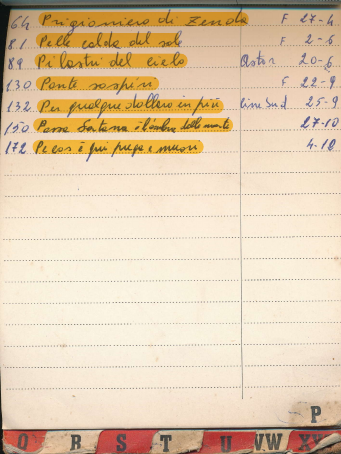 64 Prigioniero di Zenda F 27-4
81 Pelle calda del sole F 2-6
89 Pilastri del cielo Astor 20-6
130 Ponte sospiri F 22-9
132 Per qualche dollaro in più Cine Sud 25-9
150 Passa Sartana è l'ombra della morte 27-10
172 Pecos è qui prega e muori 4-12
P
Q R S T U VW XY